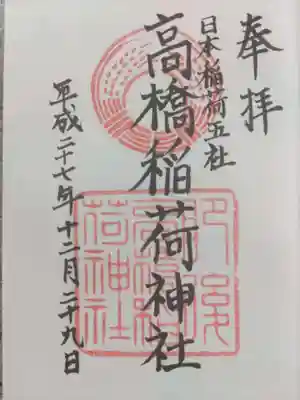 奉拝
日本稲荷五社
高橋稲荷神社
平成二十七年十二月二十九日
肥後
高橋稲
荷神社